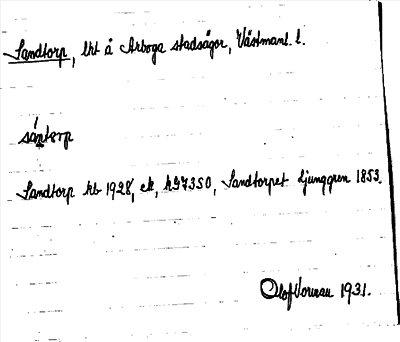 Sandtorp, lht å Arboga stadsägor, Västmanl. l.
sántorp
Sandtorp hb 1928, ek, h97350, Sandtorpet Ljunggren 1853.
Olof Vorman 1931.